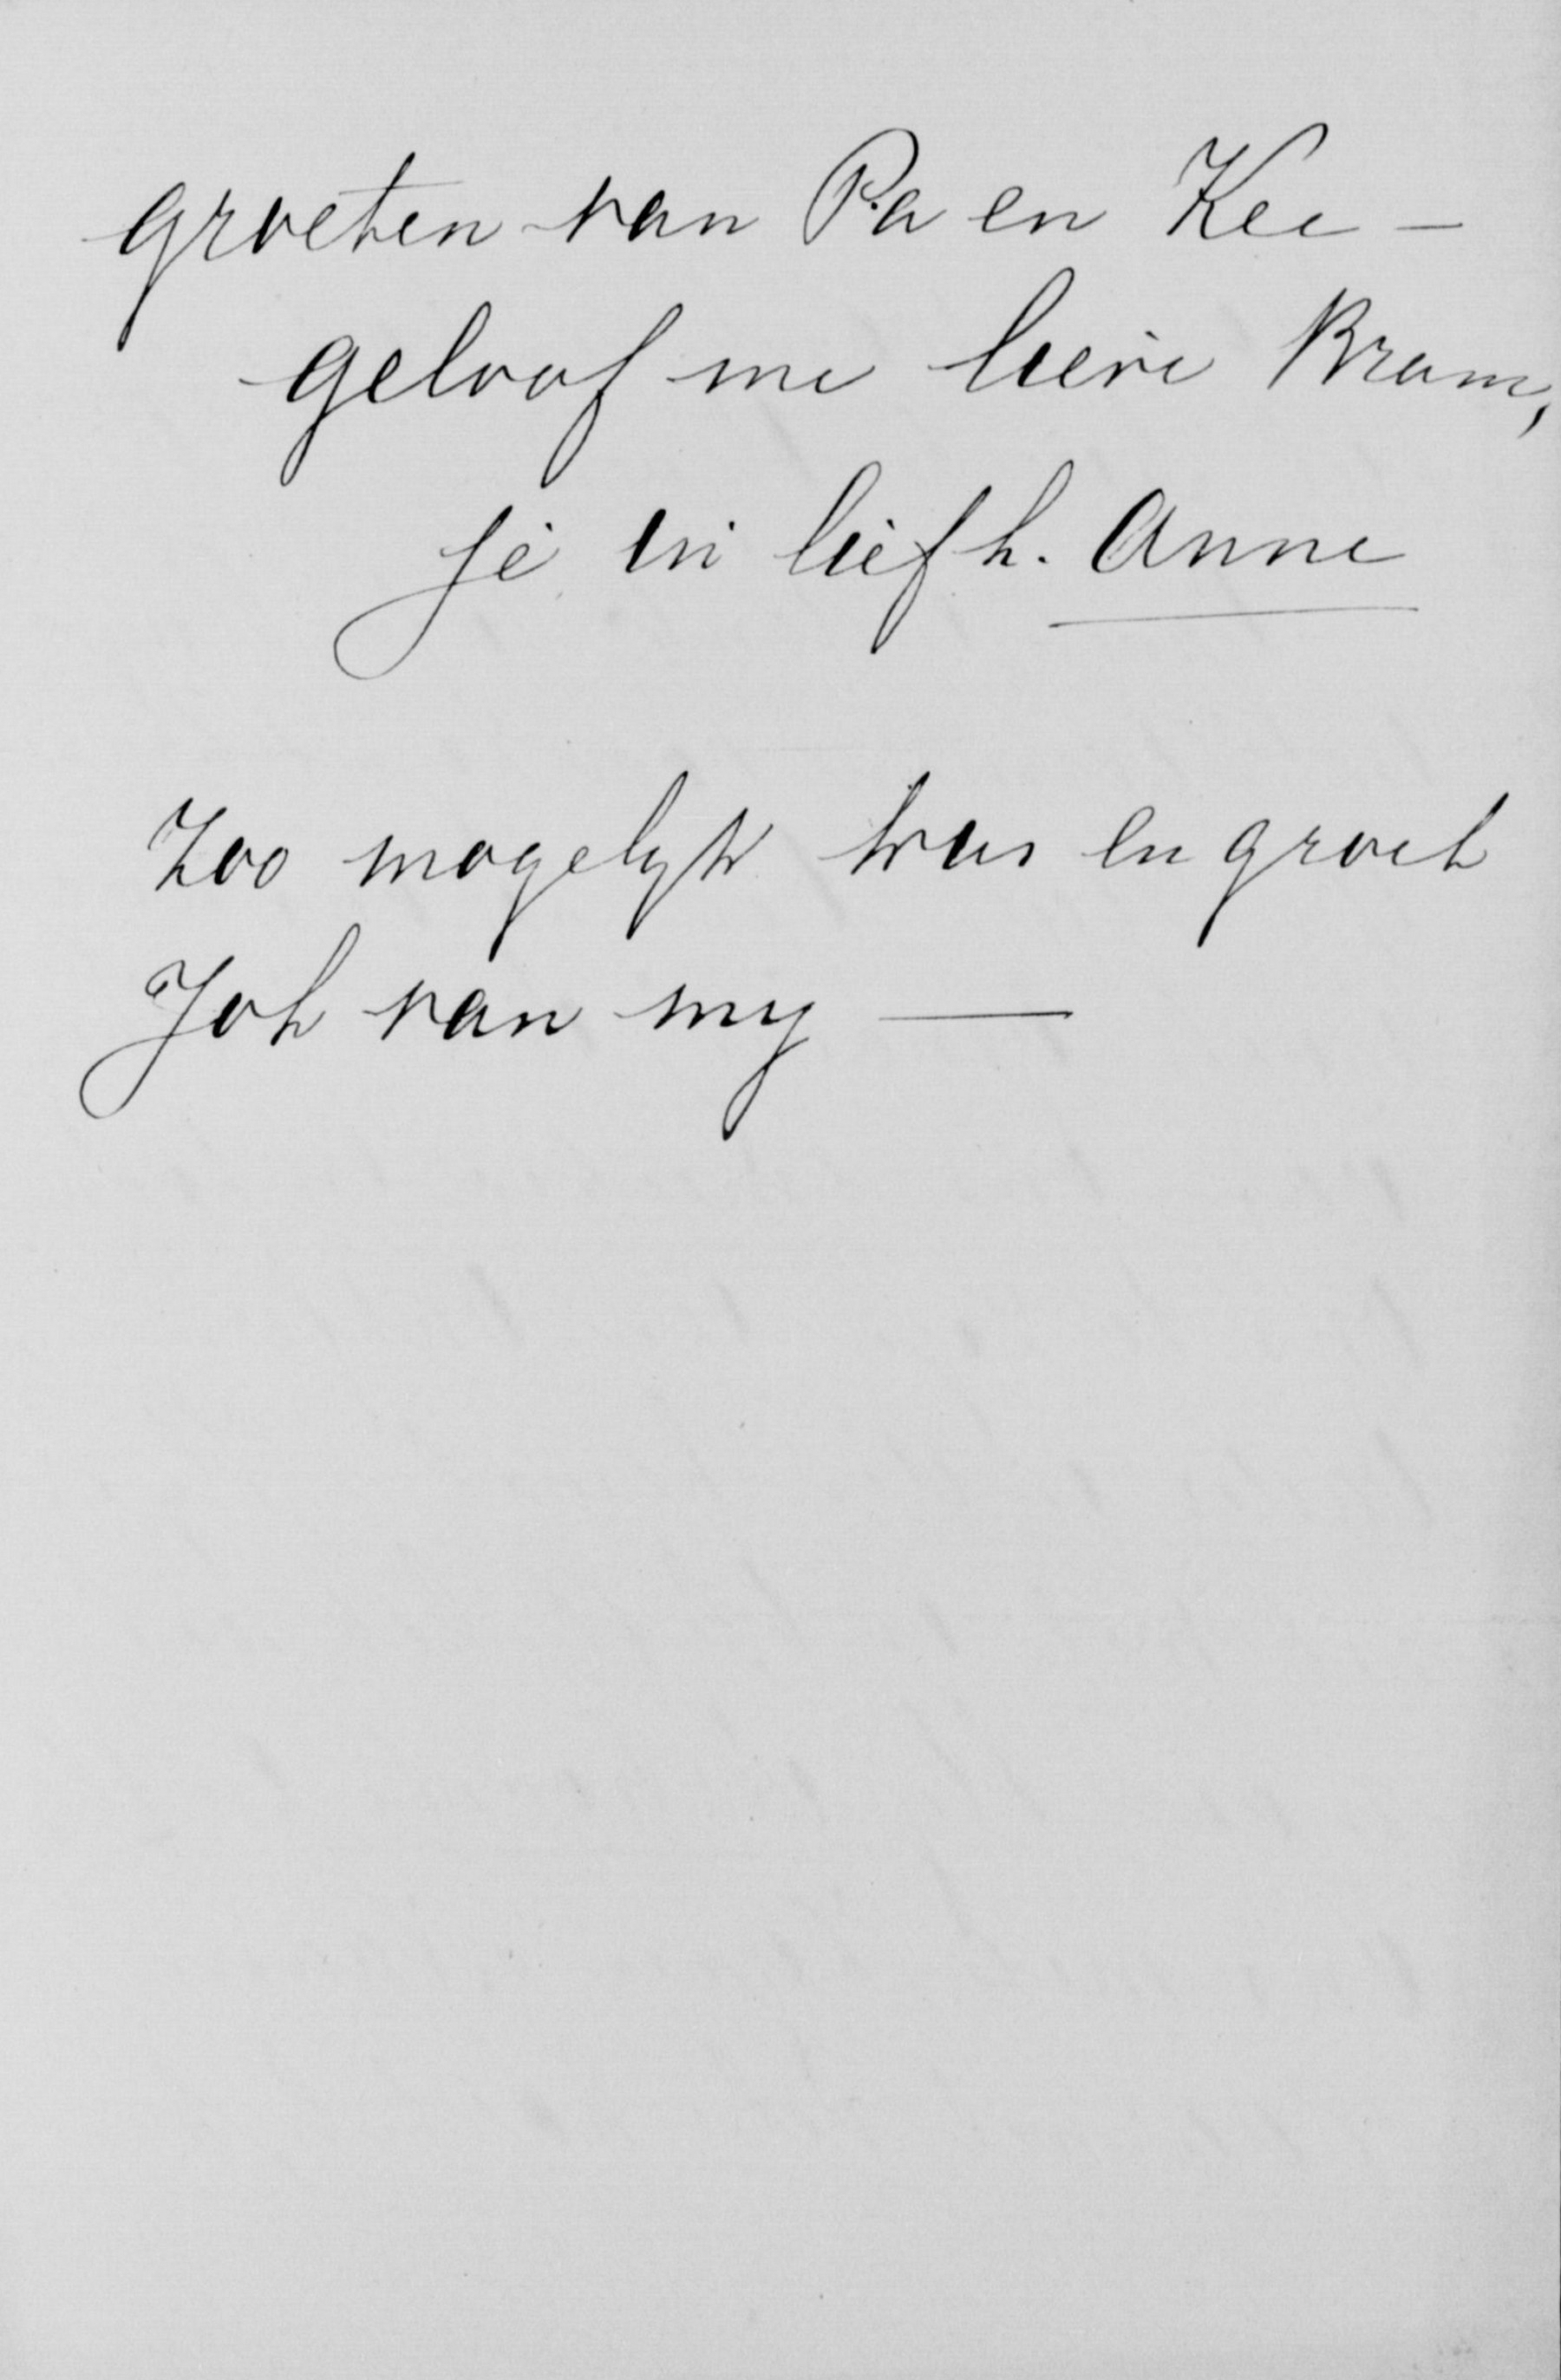 groeten van Pa en Kee –
geloof me lieve Bram,
je zoo liefh. Anne
Zoo mogelyk kus en groet
Joh van my —